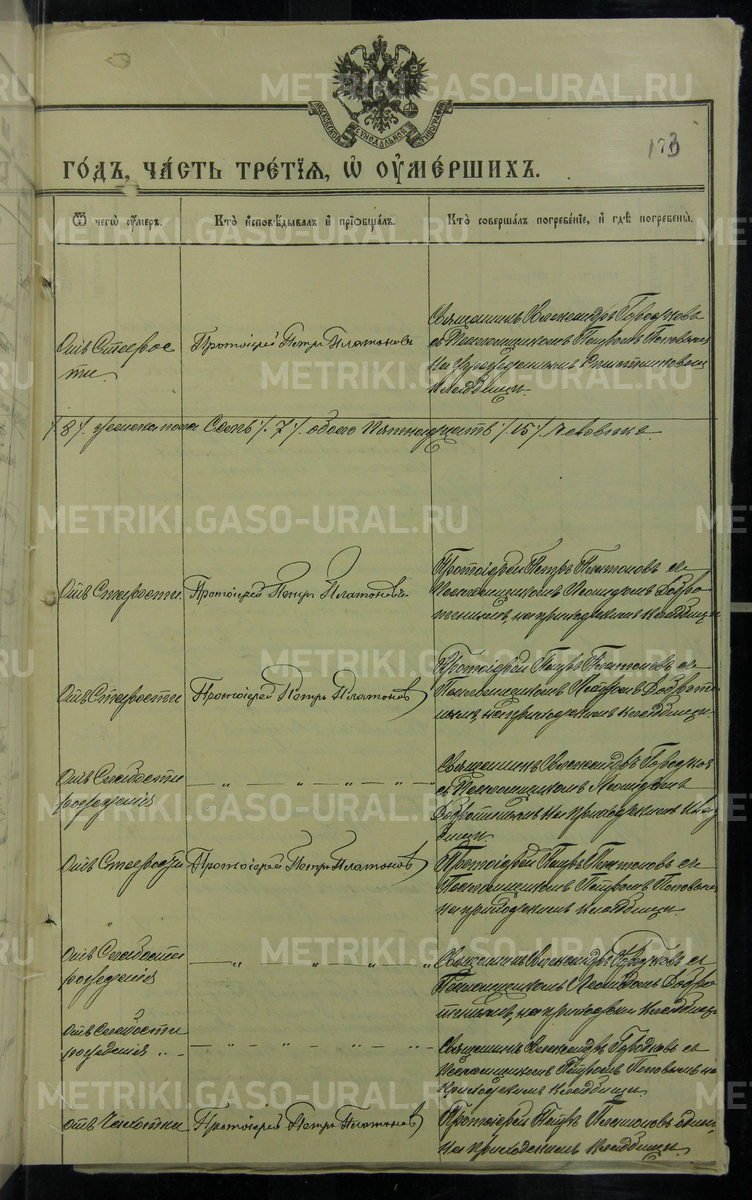 METRIKI.GASO-URAL.RU
МОСКОВСКОЙ СѴНОДАЛЬНОЙ ТИПОГРАФІИ
173
ГО́ДЪ, ЧА́СТЬ ТРЕ́ТІѦ, Ѡ҆ ОУ҆МЕ́РШИХЪ.
Ѿ чегѡ̀ оу҆́меръ.
Кто̀ и҆сповѣ́дывалъ и҆ прїѡбща́лъ.
Кто̀ соверша́лъ погребе́нїе, и҆ гдѣ̀ погребены̀.
Отъ Старос
ти.
Протоіерей Петръ Платоновъ
Священникъ Александръ Городковъ
съ Псаломщикомъ Петромъ Поповымъ
на
кладбищѣ
/8/. женска пола Семь /.7/. обоего Пятнадцать /.15/. человѣкъ.
Отъ Старости
Протоіерей Петръ Платоновъ
Протоіерей Петръ Платоновъ съ
Псаломщикомъ Леонидомъ Добро
тинымъ, на приходскомъ кладбищѣ
Отъ Старости
Протоіерей Петръ Платоновъ
Протоіерей Петръ Платоновъ съ
Псаломщикомъ
на приходскомъ кладбищѣ.
Отъ Слабости
рожденія
— „ — „ — „ — „ —
Священникъ Александръ Городков
съ Псаломщикомъ Леонидомъ
Добротинымъ на приходскомъ клад
бищѣ
Отъ Старости
Протоіерей Петръ Платоновъ
Протоіерей Петръ Платоновъ съ
Псаломщикомъ Петромъ Поповымъ
на приходскомъ кладбищѣ.
Отъ Слабости
рожденія
— „ „ — „ — „
Священникъ Александръ Городковъ съ
Псаломщикомъ Леонидомъ Добро
тинымъ, на приходском кладбищѣ
Отъ Слабости
рожденія
— „ — „ — „ — „ —
Священникъ Александръ Городковъ съ
Псаломщикомъ Петромъ Поповымъ на
Приходскомъ кладбищѣ
Отъ Чахотки
Протоіерей Петръ Платоновъ
Протоіерей Петръ Платоновъ один
на Приходскомъ кладбищѣ.